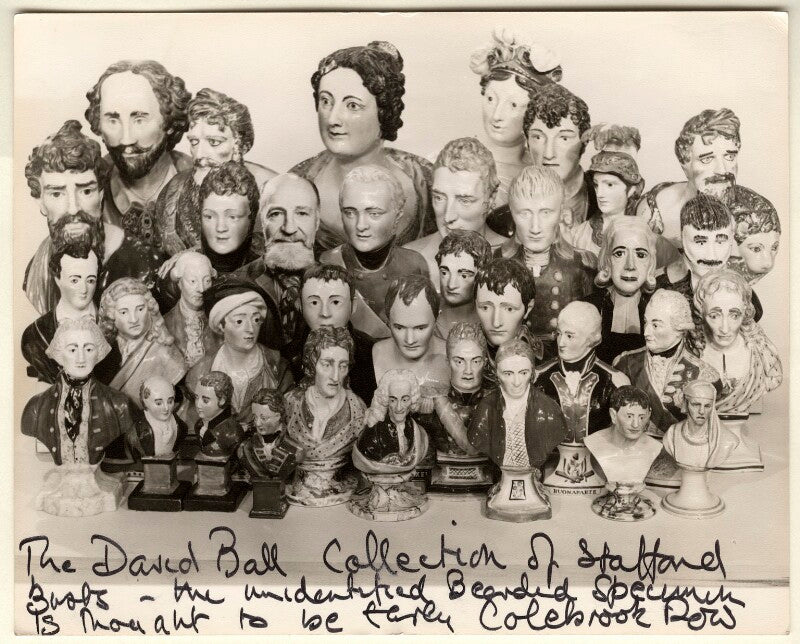 BUONAPARTE
The David Ball Collection of Stafford
Busts - the unidentified Bearded Specimen
is thought to be Early Colebrook Row